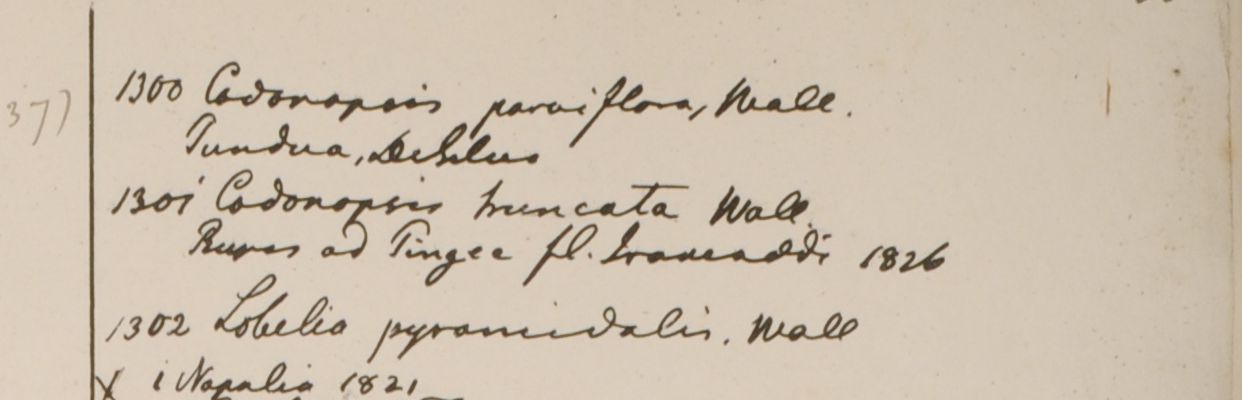 377
1300 Codonopsis parviflora, Wall.
Tundua, De Silva
1301 Codonopsis truncata Wall.
Rupes ad Tingee fl. Irawaddi 1826
1302 Lobelia pyramidalis. Wall
X i Napalia 1821